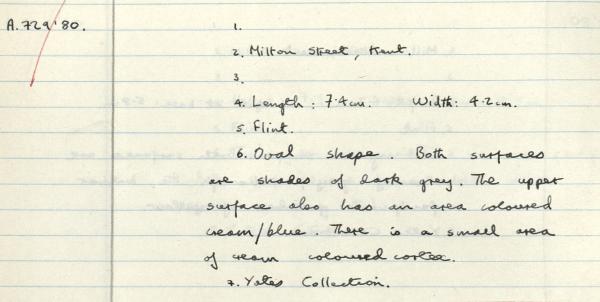 A.729'80. 1.
2. Milton Street, Kent.
3.
4. Length: 7.4cm. Width: 4.2cm.
5. Flint.
6. Oval shape. Both surfaces
are shades of dark grey. The upper
surface also has an area coloured
cream/blue. There is a small area
of cream coloured cortex.
7. Yates Collection.